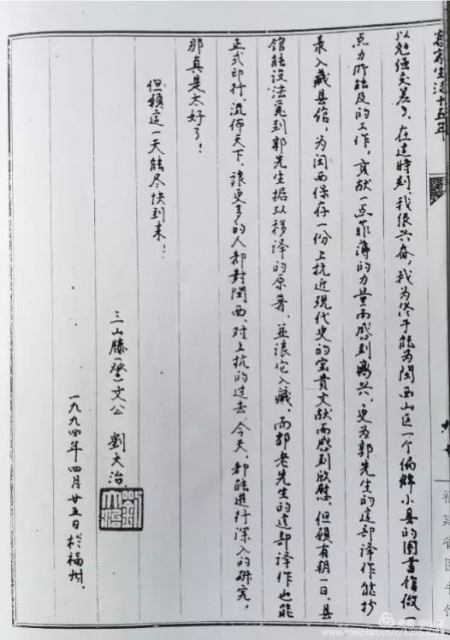 客家生活十五年
以勉强交差了。在这时刻,我很兴奋,我为终于能为闽西山区一个偏僻小县的图书馆做
点力所能及的工作,贡献一点菲薄的力量而感到高兴,更为郭先生的这部译作能抄
录入藏县馆,为闽西保存一份上杭近现代史的宝贵文献而感到欣慰。但愿有朝一日,县
馆能设法觅到郭先生据以移译的原著,並让它入藏,而郭老先生的这部译作也能
正式印行,流佈天下,让更多的人都对閩西、对上杭的过去、今天,都能进行深入的研究,
那真是太好了!
但愿這一天能尽快到来!
三山滕(㽦)文公 劉大治
一九九四年四月廿五日於福州.
福建省图书馆
www.meipian.cn